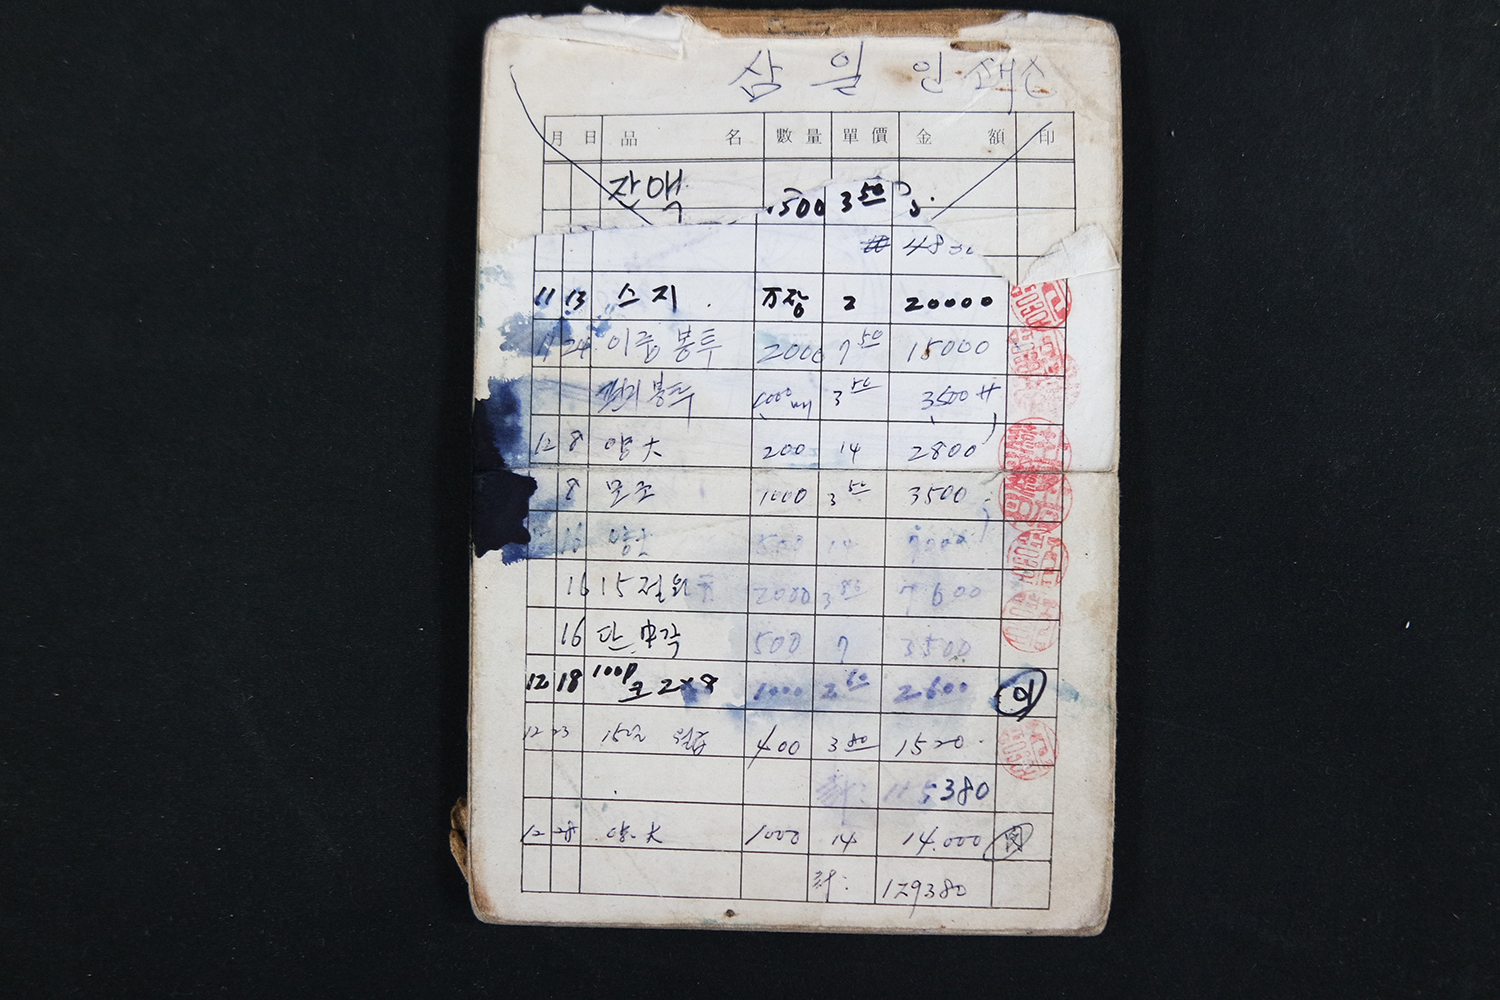 삼일인쇄소
月 日 品名 數量 單價 金額 印
잔액 1500 3 50
48
11 13 스지 万장 2 20000
11 24 이중봉투 2000 7 50 15000
편지봉투 1000매 3 50 3500
12 8 양大 200 14 2800
8 모조 1000 3 50 3500
16 500 14 7000
16 15절 2000 3 80 7600
16 단 500 7 3500
12 18 100p 2×8 1000 2 60 2600
12 23 15절 400 3 80 1520
계: 115380
12 28 양大 1000 14 14.000
계: 129380